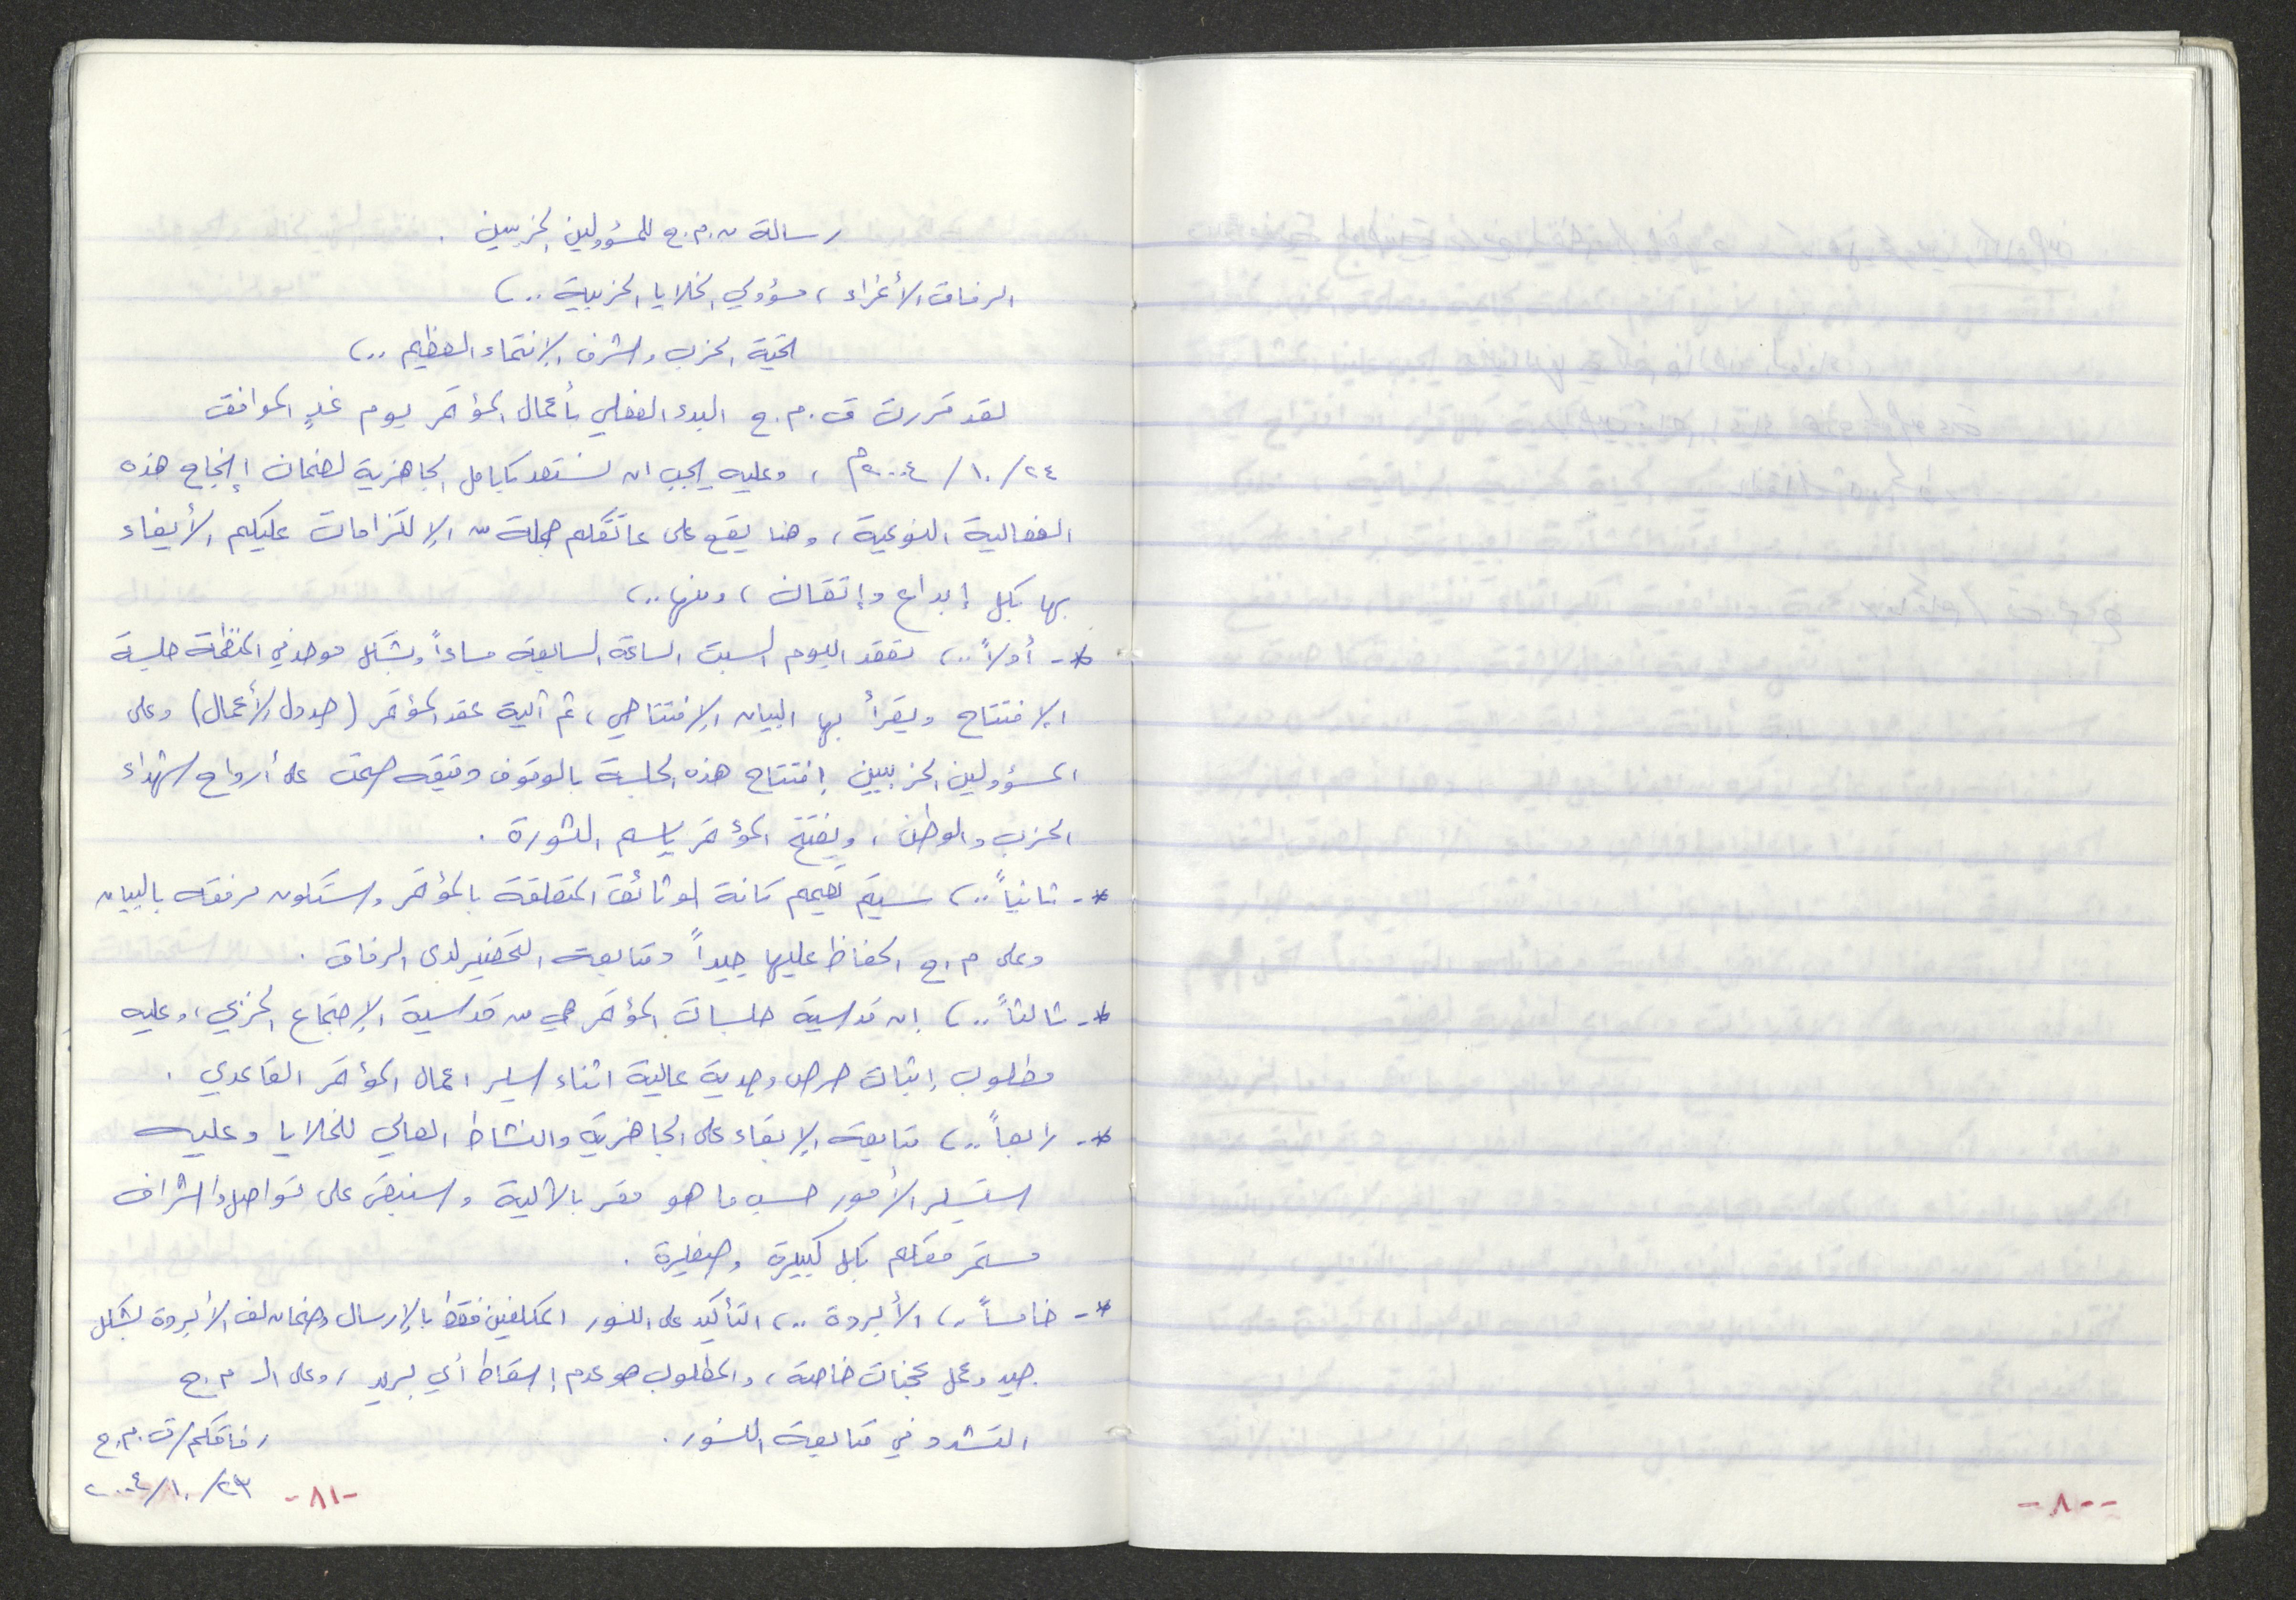 -٨٠-
رسالة من م.ج للمسؤولين الحزبيين .
الرفاق الأعزاء ، مسؤولي الخلايا الحزبية ..،
تحية الحزب وشرف الإنتماء العظيم ..،
لقد قررت ق.م.ج البدء الفعلي بأعمال المؤتمر يوم غدٍ الموافق
٢٤/١٠/٢٠٠٤م ، وعليه يجب ان نستعد بكامل الجاهزية لضمان إنجاح هذه
الفعالية النوعية ، وهنا يقع على عاتقكم جملة من الإلتزامات عليكم الأيفاء
بها بكل إبداع وإتقان ، ومنها ..،
*- أولاً ..، تعقد اليوم السبت الساعة السابعة مساءاً وبشكل موحد في المنظمة جلسة
الإفتتاح ويقرأ بها البيان الإفتتاحي ، ثم آلية عقد المؤتمر (جدول الأعمال) وعلى
المسؤولين الحزبيين إفتتاح هذه الجلسة بالوقوف دقيقه صمت على أرواح شهداء
الحزب والوطن ، ويفتتح المؤتمر باسم الثورة .
*- ثانياً ..، سيتم تعميم كافة الوثائق المتعلقة بالمؤتمر وستكون مرفقه بالبيان
وعلى م.ج الحفاظ عليها جيداً ومتابعة التحضير لدى الرفاق .
*- ثالثاً ..، إن قدسية جلسات المؤتمر هي من قدسية الإجتماع الحزبي ، وعليه
مطلوب إثبات حرص وجدية عالية اثناء سير اعمال المؤتمر القاعدي .
*- رابعاً ..، متابعة الإبقاء على الجاهزية والنشاط العالي للخلايا وعليه
ستسير الأمور حسب ما هو مقر بالآلية وسنبقى على تواصل وإشراف
مستمر معكم بكل كبيرة وصغيرة .
*- خامساً ..، الأبردة ..، التأكيد على النسور المكلفين فقط بالإرسال وضمان لف الأبردة بشكل
جيد وعمل محجنات خاصة ، والمطلوب هو عدم إسقاط أي بريد ، وعلى الـ م.ج
التشدد في متابعة النسور .
رفاقكم/ق.م.ج
٢٣/١٠/٢٠٠٤
-٨١-